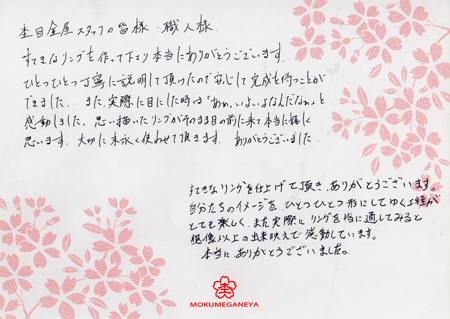 杢目金屋スタッフの皆様・職人様
すてきなリングを作って下さり本当にありがとうございます。
ひとつひとつ丁寧に説明して頂けたので安心して完成を待つことが
できました。また、実際に目にした時は「あぁ、いよいよなんだなぁ」と
感動しました。思い描いたリングがそのまま目の前に来て本当に嬉しく
思います。大切に末永く使わせて頂きます。ありがとうございました。
すてきなリングを仕上げて頂き、ありがとうございます。
自分たちのイメージを、ひとつひとつ形にしてゆく工程が
とても楽しく、また実際にリングを指に通してみると
想像以上の出来映えで感動しています。
本当にありがとうございました。
MOKUMEGANEYA